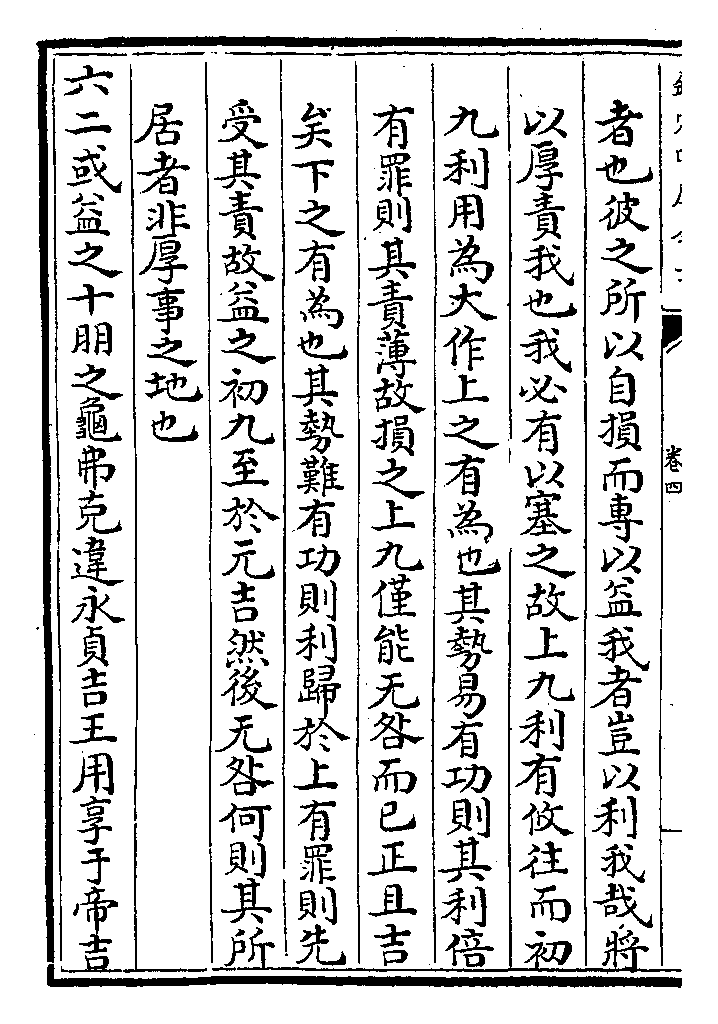 卷四
者也彼之所以自損而專以益我者豈以利我哉將
以厚責我也我必有以塞之故上九利有攸往而初
九利用為大作上之有為也其勢易有功則其利倍
有罪則其責薄故損之上九僅能无咎而已正且吉
矣下之有為也其勢難有功則利歸於上有罪則先
受其責故益之初九至於元吉然後无咎何則其所
居者非厚事之地也
六二或益之十朋之龜弗克違永貞吉王用享于帝吉